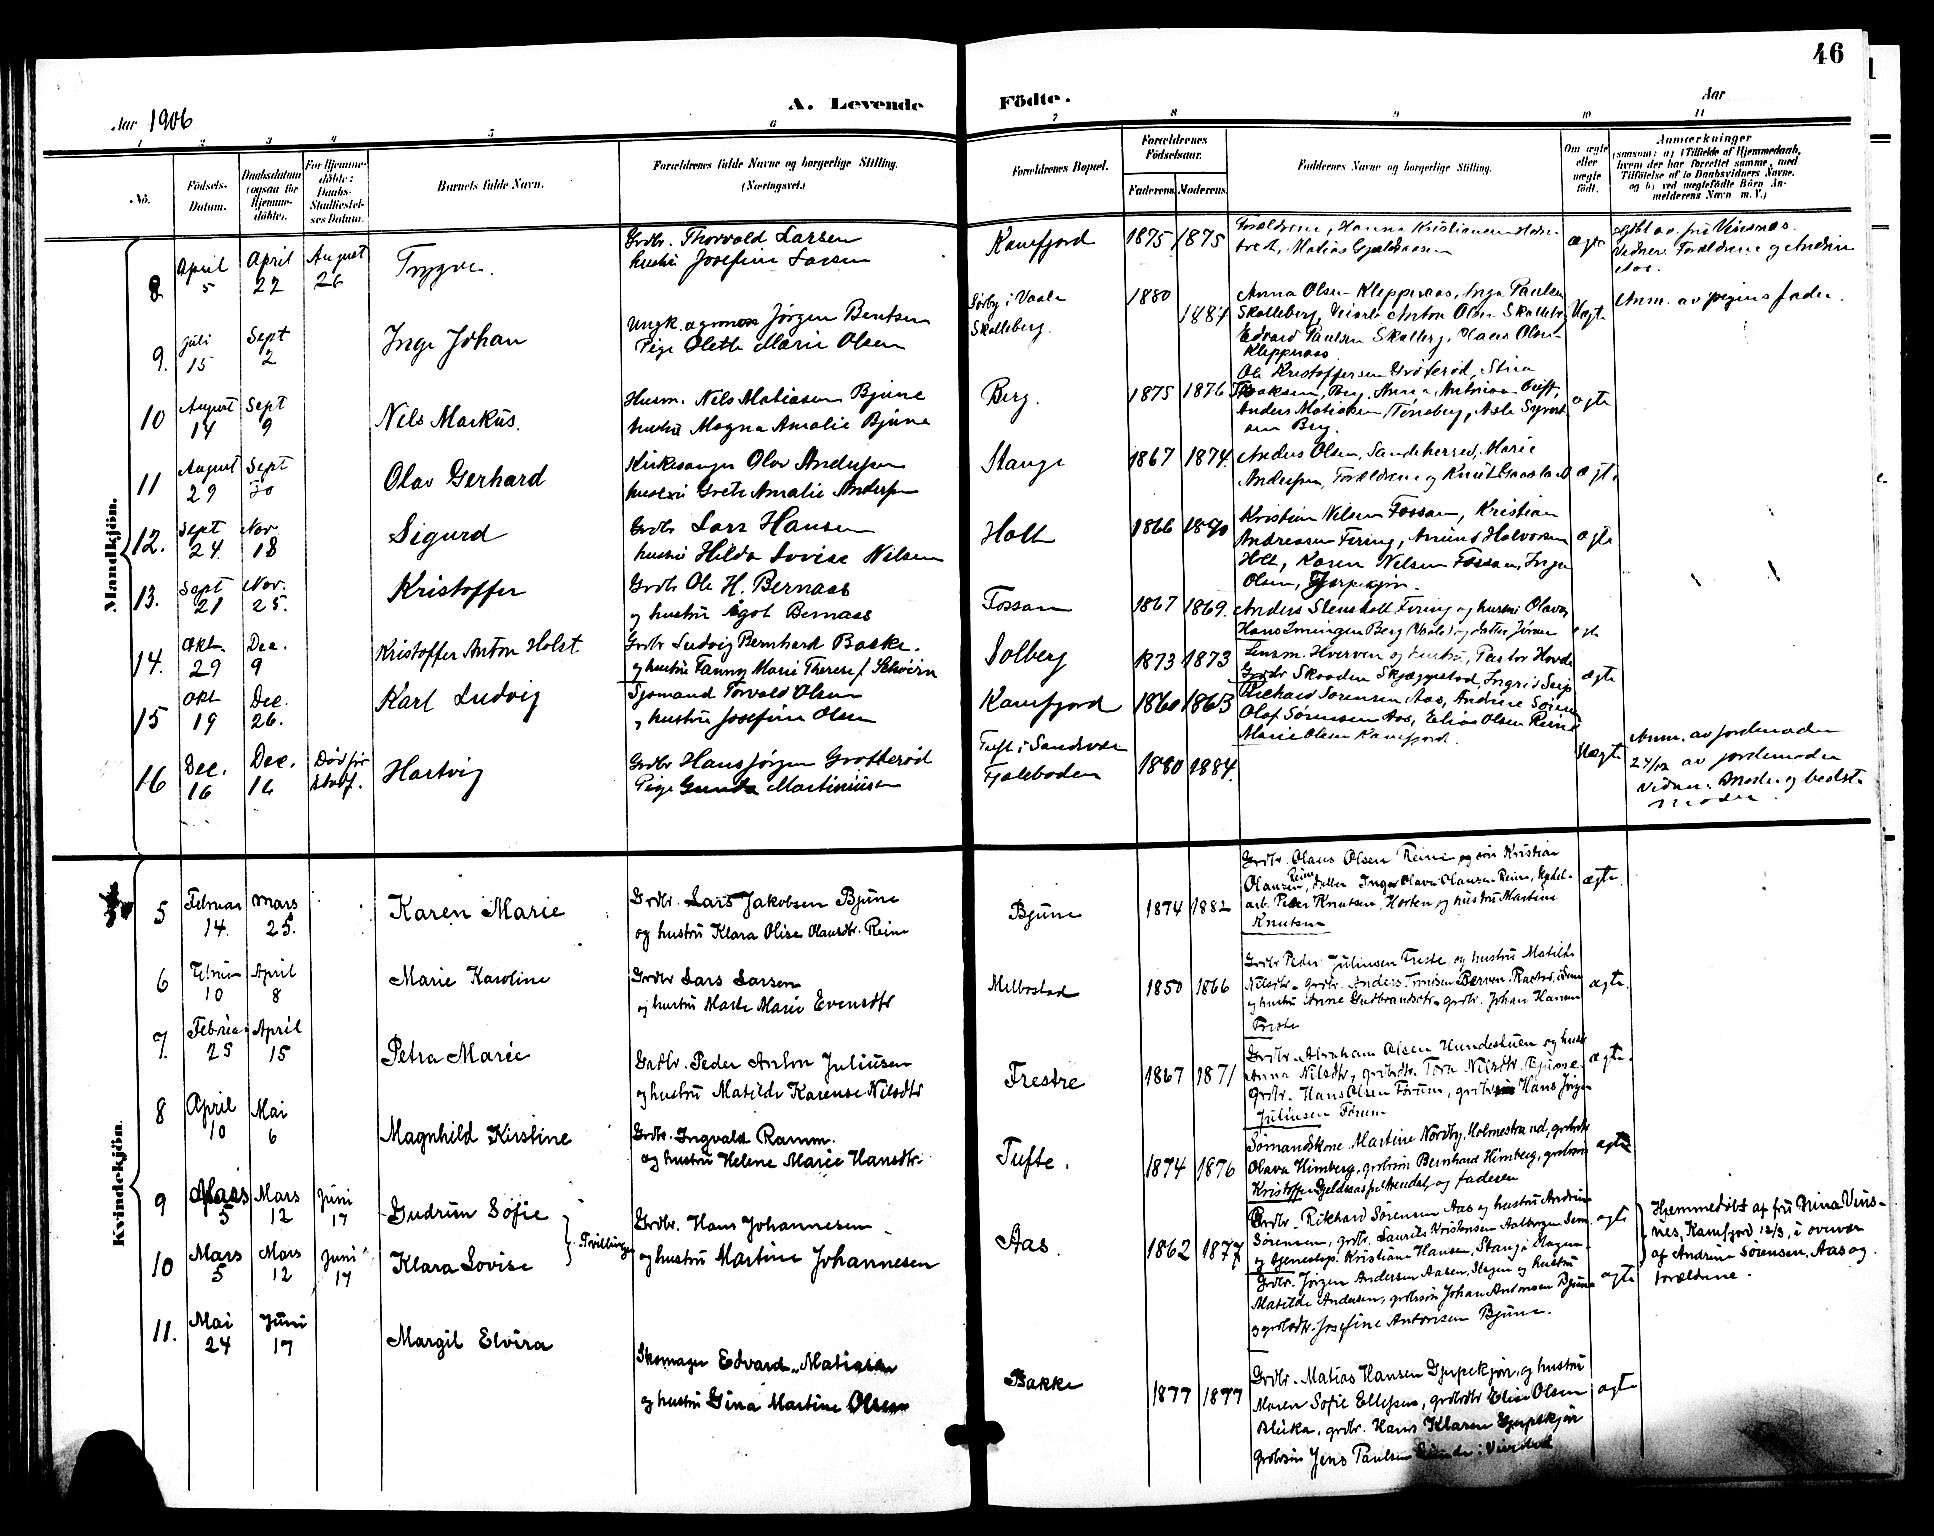 46
Aar 1906
A. Levende Födte.
Aar
1 2 3 4 5 6 7 8 9 10 11
No.
Födsels-Datum.
Daabsdatum (ogsaa for Hjemme-döbte).
For Hjemme-döbte: Daabs-Stadfæstelses Datum.
Barnets fulde Navn.
Forældrenes fulde Navne og borgerlige Stilling. (Næringsvei.)
Forældrenes Bopæl.
Forældrenes Födselsaar.
Faderens. Moderens.
Faddernes Navne og borgerlige Stilling.
Om ægte eller uægte födt.
Anmærkninger
(saasom: a) i Tilfælde af Hjemmedaab, hvem der har forrettet samme, med Tilföielse af to Daabsvidners Navne, og b) ved uegtefödte Börn Anmelderens Navn m. V.)
Mandkjön.
8 April 5 April 22 August 26
Trygve.
Grdbr. Thorvald Larsen
hustru Josefine Larsen
Ramfjord 1875 1875
Forældrene, Hanna Kristiansen
Matias
ægte
Vidner: Forældrene og Andrine
Aas.
9. Juli 15 Sept 2
Inge Johan
Ungk. Jørgen Bentsen
Pige Oleth Marie Olsen
Sørby i Vaale
Skalleberg.
1880 1884
Anna Olsen Kleppenaas, Inga Paulsen
Skalleberg, Anton Olsen
Edvard Paulsen Skalberg, Hans Olsen
Kleppenaas
Uægte
Anm. av pigens fader.
10 August 14 Sept 9
Nels Markus.
Husm. Nels Matiasen Bjune
hustru Magna Amalie Bjune
Berg. 1875 1876
Ole Kristoffersen
Isaksen, Berg, Anna
Anders Matiasen, Tønsberg, Asle
Berg.
ægte
11 August 29 Sept 30
Olav Gerhard
Kirkesanger Olav Andersen
hustru Grete Amalie Andersen
Stange 1867 1874.
Anders Olsen, Sandeherred, Marie
Andersen, Forældrene og Knut Gaasland
ægte
12. Sept 24. Nov. 18
Sigurd
Grdbr Lars Hansen
hustru Hilda Lovise Nilsen
Holt 1866 1880
Kristian Nilsen Fossan, Kristian
Andreasen Firing, Halvorsen
Holt, Karen Nilsen Fossan, Inga
Olsen,
ægte
13. Sept 21 Nov. 25.
Kristoffer
Grdbr Ole H. Bernaas
og hustru Ågot Bernaas
Fossan 1867 1869.
Anders Stensholt Firing og hustru Olava
Berg (Vaale) og datter
14. Okt. 29 Dec. 9
Kristoffer Anton Holst
Grdbr Ludvig Bernhard Baske.
og hustru Fanny Marie Therese f. Schwirn
Solberg 1873 1873
Lensm. Hverven og hustru, Pastor Hovde
Grdbr Skaaden Skjæggestad, Ingrid Seip
ægte
15 Okt 19 Dec. 26.
Karl Ludvig
Sjømand Torvald Olsen
og hustru Josefine Olsen
Ramfjord 1860 1863
Richard Sørensen Aas, Andrine Sørensen
Olaf Sørensen Aas, Elias Olsen Reine
Marie Olsen Ramfjord.
16 Dec. 16 Dec. 16 Død før stadf.
Hartvig
Grdbr Hans Jørgen Grotterød
Pige Gunda Martiniusen
Tuft i Sandsvær
Fjaleboden
1880 1884.
Uægte
Anm. av jordemoder
27/12 av jordemoder
Vidner: Moder og bedste-
moder.
Kvindekjön.
5 Februar 14. Mars 25.
Karen Marie
Grdbr. Lars Jakobsen Bjune
og hustru Klara Olise Olausdtr. Reine
Bjune 1874 1882
Grdbr. Olaus Olsen Reine og søn Kristian
Olausen Reine, datter Inga Olava Olausen Reine,
arb. Peder Knutsen, Horten og hustru Martine
Knutsen
ægte.
6 Februar 10 April 8
Marie Karoline
Grdbr Lars Larsen
og hustru Marte Marie Evensdtr
Melbostad 1850 1866
Grdbr Peder Juliusen Freste og hustru Matilde
Nilsdtr, grdbr. Anders
og hustru Anne Gudbrandsdtr, grdbr. Johan Hansen
Freste
ægte.
7. Februar 25 April 15
Petra Marie
Grdbr. Peder Anton Juliusen
og hustru Matilde Karense Nilsdtr
Frestre 1867 1871
Grdbr. Abraham Olsen Hundestuen og hustru
Anna Nilsdtr, Nilsdtr, Bjune,
Grdbr. Hans Olsen Førum, Hans Jørgen
Juliusen Førum
ægte.
8 April 10 Mai 6
Magnhild Kirstine
Grdbr. Ingvald Ramm.
og hustru Helene Marie Hansdtr.
Tufte. 1874 1876
Sømandskone Martine Nordby, Holmestrand,
Olava Himberg, grdbrsøn Bernhard Himberg, grdbrsøn
Kristoffer og faderen
ægte
9 Mars 5 Mars 12 Juni 17
Gudrun Sofie
Tvillinger
Grdbr. Hans Johannesen
og hustru Martine Johannesen
Aas. 1862 1877
Grdbr. Rikhard Sørensen Aas og hustru Andrine
Sørensen, grdbr. Laurits Kristensen
og Kristiane Hansen, Stange
ægte
Hjemmedøbt af fru Nina Vins-
nes, Ramfjord 12/3, i overvær
af Andrine Sørensen, Aas og
forældrene.
10 Mars 5 Mars 12 Juni 17
Klara Lovise
Grdbr. Jørgen Andersen Aasen, Slagen og hustru
Matilde Andersen, grdbrsøn Johan Antonsen Bjune
og grdbrdtr. Josefine Antonsen Bjune.
ægte
11. Mai 24 Juni 17
Margit Elvira
Skomager Edvard Matiasen
og hustru Gina Martine Olsen
Bakke 1877 1877
Grdbr. Matias Hansen Gjupekjør, og hustru
Maren Sofie Ellefsen, grdbrdtr Elise Olsen
Bleika, grdbr. Hans Klaren Gjupekjør
Grdbrsøn Jens Paulsen
ægte